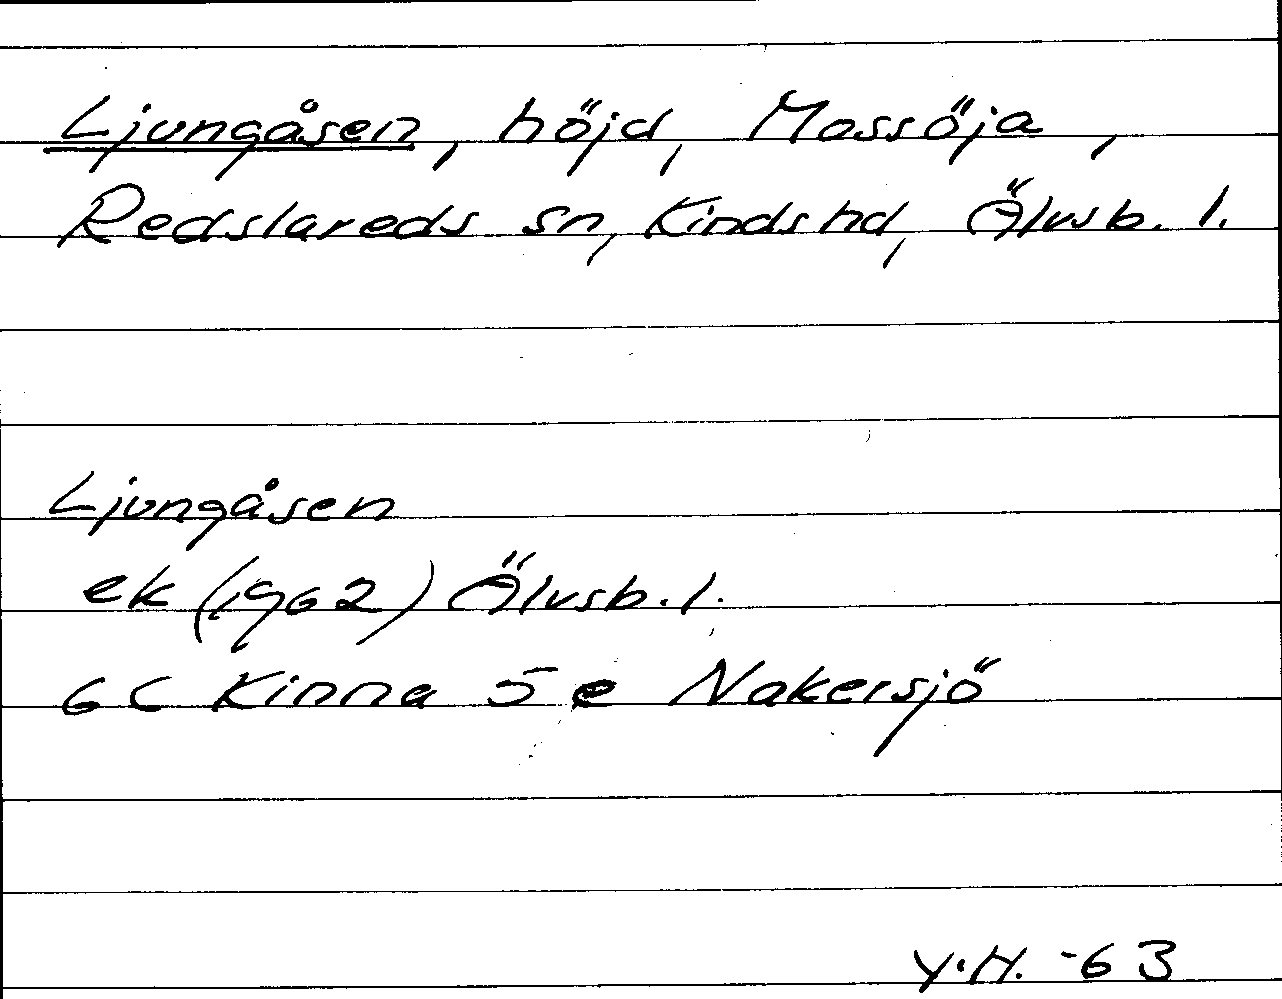 Ljungåsen, höjd, Mossöja,
Redslareds sn, Kinds hd, Älvsb. l.
Ljungåsen
ek (1962) Älvsb. l.
6C Kinna 5 e Nakersjö
Y.H. -63